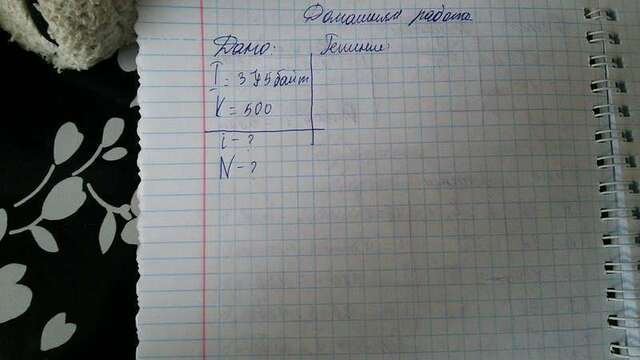 Домашняя работа
Дано: Решение:
I = 375 байт
K = 500
i - ?
N - ?